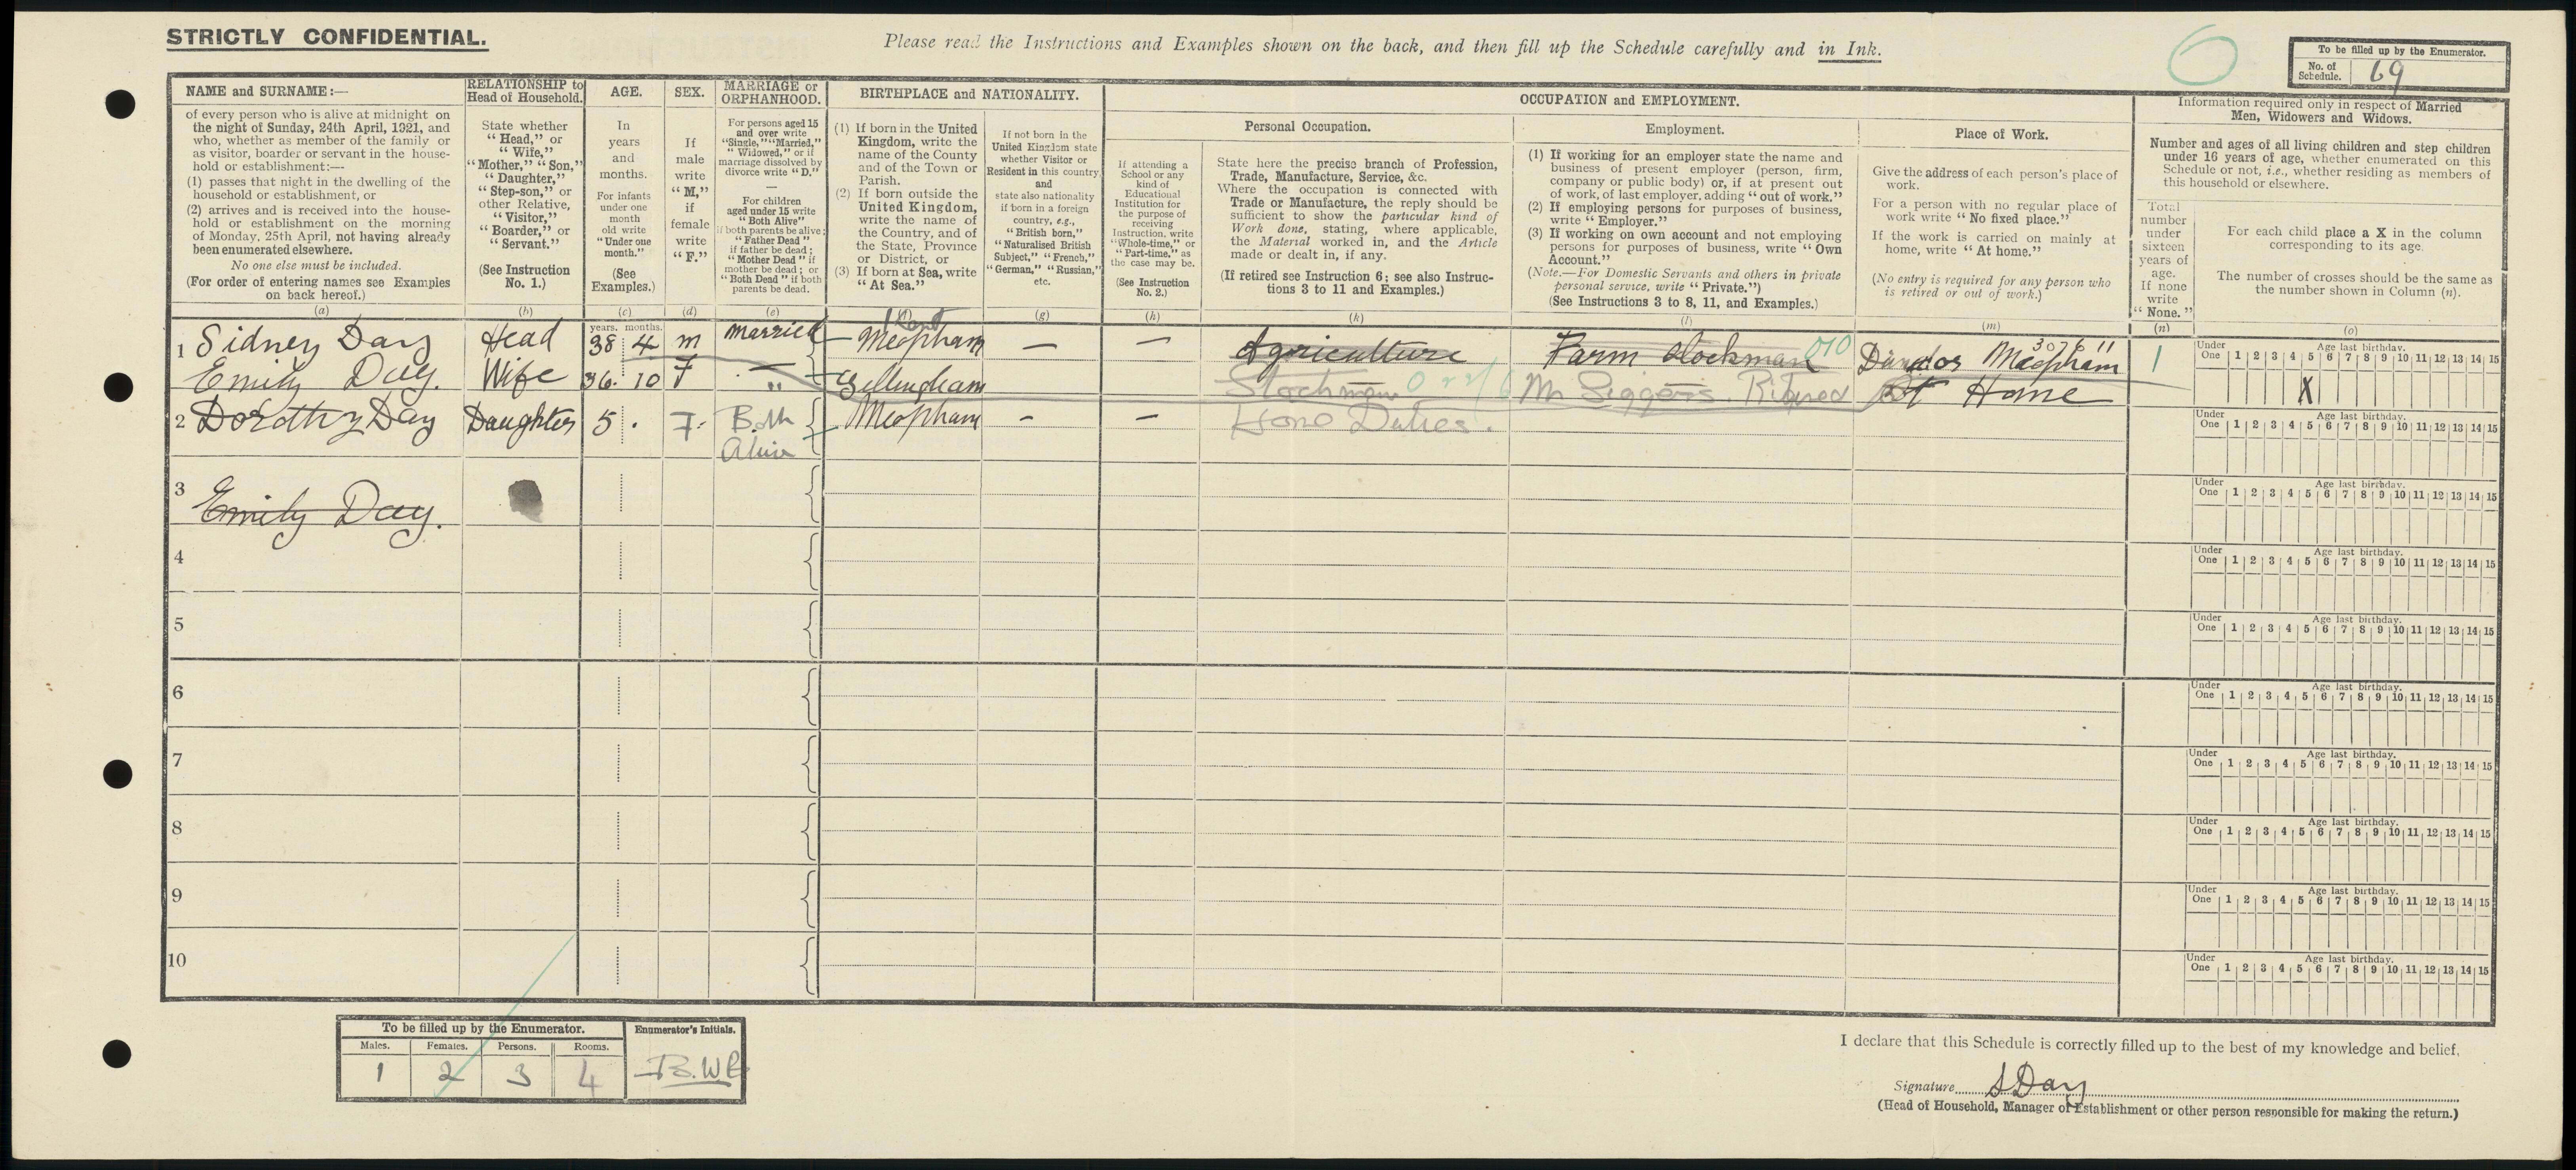 STRICTLY CONFIDENTIAL.
Please read the Instructions and Examples shown on the back, and then fill up the Schedule carefully and in Ink.
To be filled up by the Enumerator.
No. of Schedule. 69
NAME and SURNAME:—
of every person who is alive at midnight on
the night of Sunday, 24th April, 1921, and
who, whether as member of the family or
as visitor, boarder or servant in the house-
hold or establishment:—
(1) passes that night in the dwelling of the
household or establishment, or
(2) arrives and is received into the house-
hold or establishment on the morning
of Monday, 25th April, not having already
been enumerated elsewhere.
No one else must be included.
(For order of entering names see Examples
on back hereof.)
(a)
RELATIONSHIP to
Head of Household.
State whether
"Head," or
"Wife,"
"Mother," "Son,"
"Daughter,"
"Step-son," or
other Relative,
"Visitor,"
"Boarder," or
"Servant."
(See Instruction
No. 1.)
(b)
AGE.
In
years
and
months.
For infants
under one
month
old write
"Under one
month."
(See
Examples.)
(c)
SEX.
If
male
write
"M,"
if
female
write
"F."
(d)
MARRIAGE or
ORPHANHOOD.
For persons aged 15
and over write
"Single," "Married,"
"Widowed," or if
marriage dissolved by
divorce write "D."
—
For children
aged under 15 write
"Both Alive"
if both parents be alive;
"Father Dead"
if father be dead;
"Mother Dead" if
mother be dead; or
"Both Dead" if both
parents be dead.
(e)
BIRTHPLACE and NATIONALITY.
(1) If born in the United
Kingdom, write the
name of the County
and of the Town or
Parish.
(2) If born outside the
United Kingdom,
write the name of
the Country, and of
the State, Province
or District, or
(3) If born at Sea, write
"At Sea."
(f)
If not born in the
United Kingdom state
whether Visitor or
Resident in this country,
and
state also nationality
if born in a foreign
country, e.g.,
"British born,"
"Naturalised British
Subject," "French,"
"German," "Russian,"
etc.
(g)
OCCUPATION and EMPLOYMENT.
If attending a
School or any
kind of
Educational
Institution for
the purpose of
receiving
Instruction, write
"Whole-time," or
"Part-time," as
the case may be.
(See Instruction
No. 2.)
(h)
Personal Occupation.
State here the precise branch of Profession,
Trade, Manufacture, Service, &c.
Where the occupation is connected with
Trade or Manufacture, the reply should be
sufficient to show the particular kind of
Work done, stating, where applicable,
the Material worked in, and the Article
made or dealt in, if any.
(If retired see Instruction 6; see also Instruc-
tions 3 to 11 and Examples.)
(k)
Employment.
(1) If working for an employer state the name and
business of present employer (person, firm,
company or public body) or, if at present out
of work, of last employer, adding "out of work."
(2) If employing persons for purposes of business,
write "Employer."
(3) If working on own account and not employing
persons for purposes of business, write "Own
Account."
(Note.—For Domestic Servants and others in private
personal service, write "Private.")
(See Instructions 3 to 8, 11, and Examples.)
(l)
Place of Work.
Give the address of each person's place of
work.
For a person with no regular place of
work write "No fixed place."
If the work is carried on mainly at
home, write "At home."
(No entry is required for any person who
is retired or out of work.)
(m)
Information required only in respect of Married
Men, Widowers and Widows.
Number and ages of all living children and step children
under 16 years of age, whether enumerated on this
Schedule or not, i.e., whether residing as members of
this household or elsewhere.
Total
number
under
sixteen
years of
age.
If none
write
"None."
(n)
For each child place a X in the column
corresponding to its age.
The number of crosses should be the same as
the number shown in Column (n).
(o)
years. months.
1 Sidney Day Head 38 4 m married Kent Meopham — — Agriculture Farm Stockman 010 Meopham 3076 11 1
Under One 1 2 3 4 5 6 7 8 9 10 11 12 13 14 15 Age last birthday.
X
Emily Day. Wife 36. 10 F — " Gellingham Stockman Mr At Home
2 Dorothy Day Daughter 5 . F. Both Alive Meopham - — Home Duties.
Under One 1 2 3 4 5 6 7 8 9 10 11 12 13 14 15 Age last birthday.
3 Emily Day.
Under One 1 2 3 4 5 6 7 8 9 10 11 12 13 14 15 Age last birthday.
4
Under One 1 2 3 4 5 6 7 8 9 10 11 12 13 14 15 Age last birthday.
5
Under One 1 2 3 4 5 6 7 8 9 10 11 12 13 14 15 Age last birthday.
6
Under One 1 2 3 4 5 6 7 8 9 10 11 12 13 14 15 Age last birthday.
7
Under One 1 2 3 4 5 6 7 8 9 10 11 12 13 14 15 Age last birthday.
8
Under One 1 2 3 4 5 6 7 8 9 10 11 12 13 14 15 Age last birthday.
9
Under One 1 2 3 4 5 6 7 8 9 10 11 12 13 14 15 Age last birthday.
10
Under One 1 2 3 4 5 6 7 8 9 10 11 12 13 14 15 Age last birthday.
To be filled up by the Enumerator.
Enumerator's Initials.
Males. Females. Persons. Rooms.
1 2 3 4
I declare that this Schedule is correctly filled up to the best of my knowledge and belief.
Signature S Day
(Head of Household, Manager of Establishment or other person responsible for making the return.)